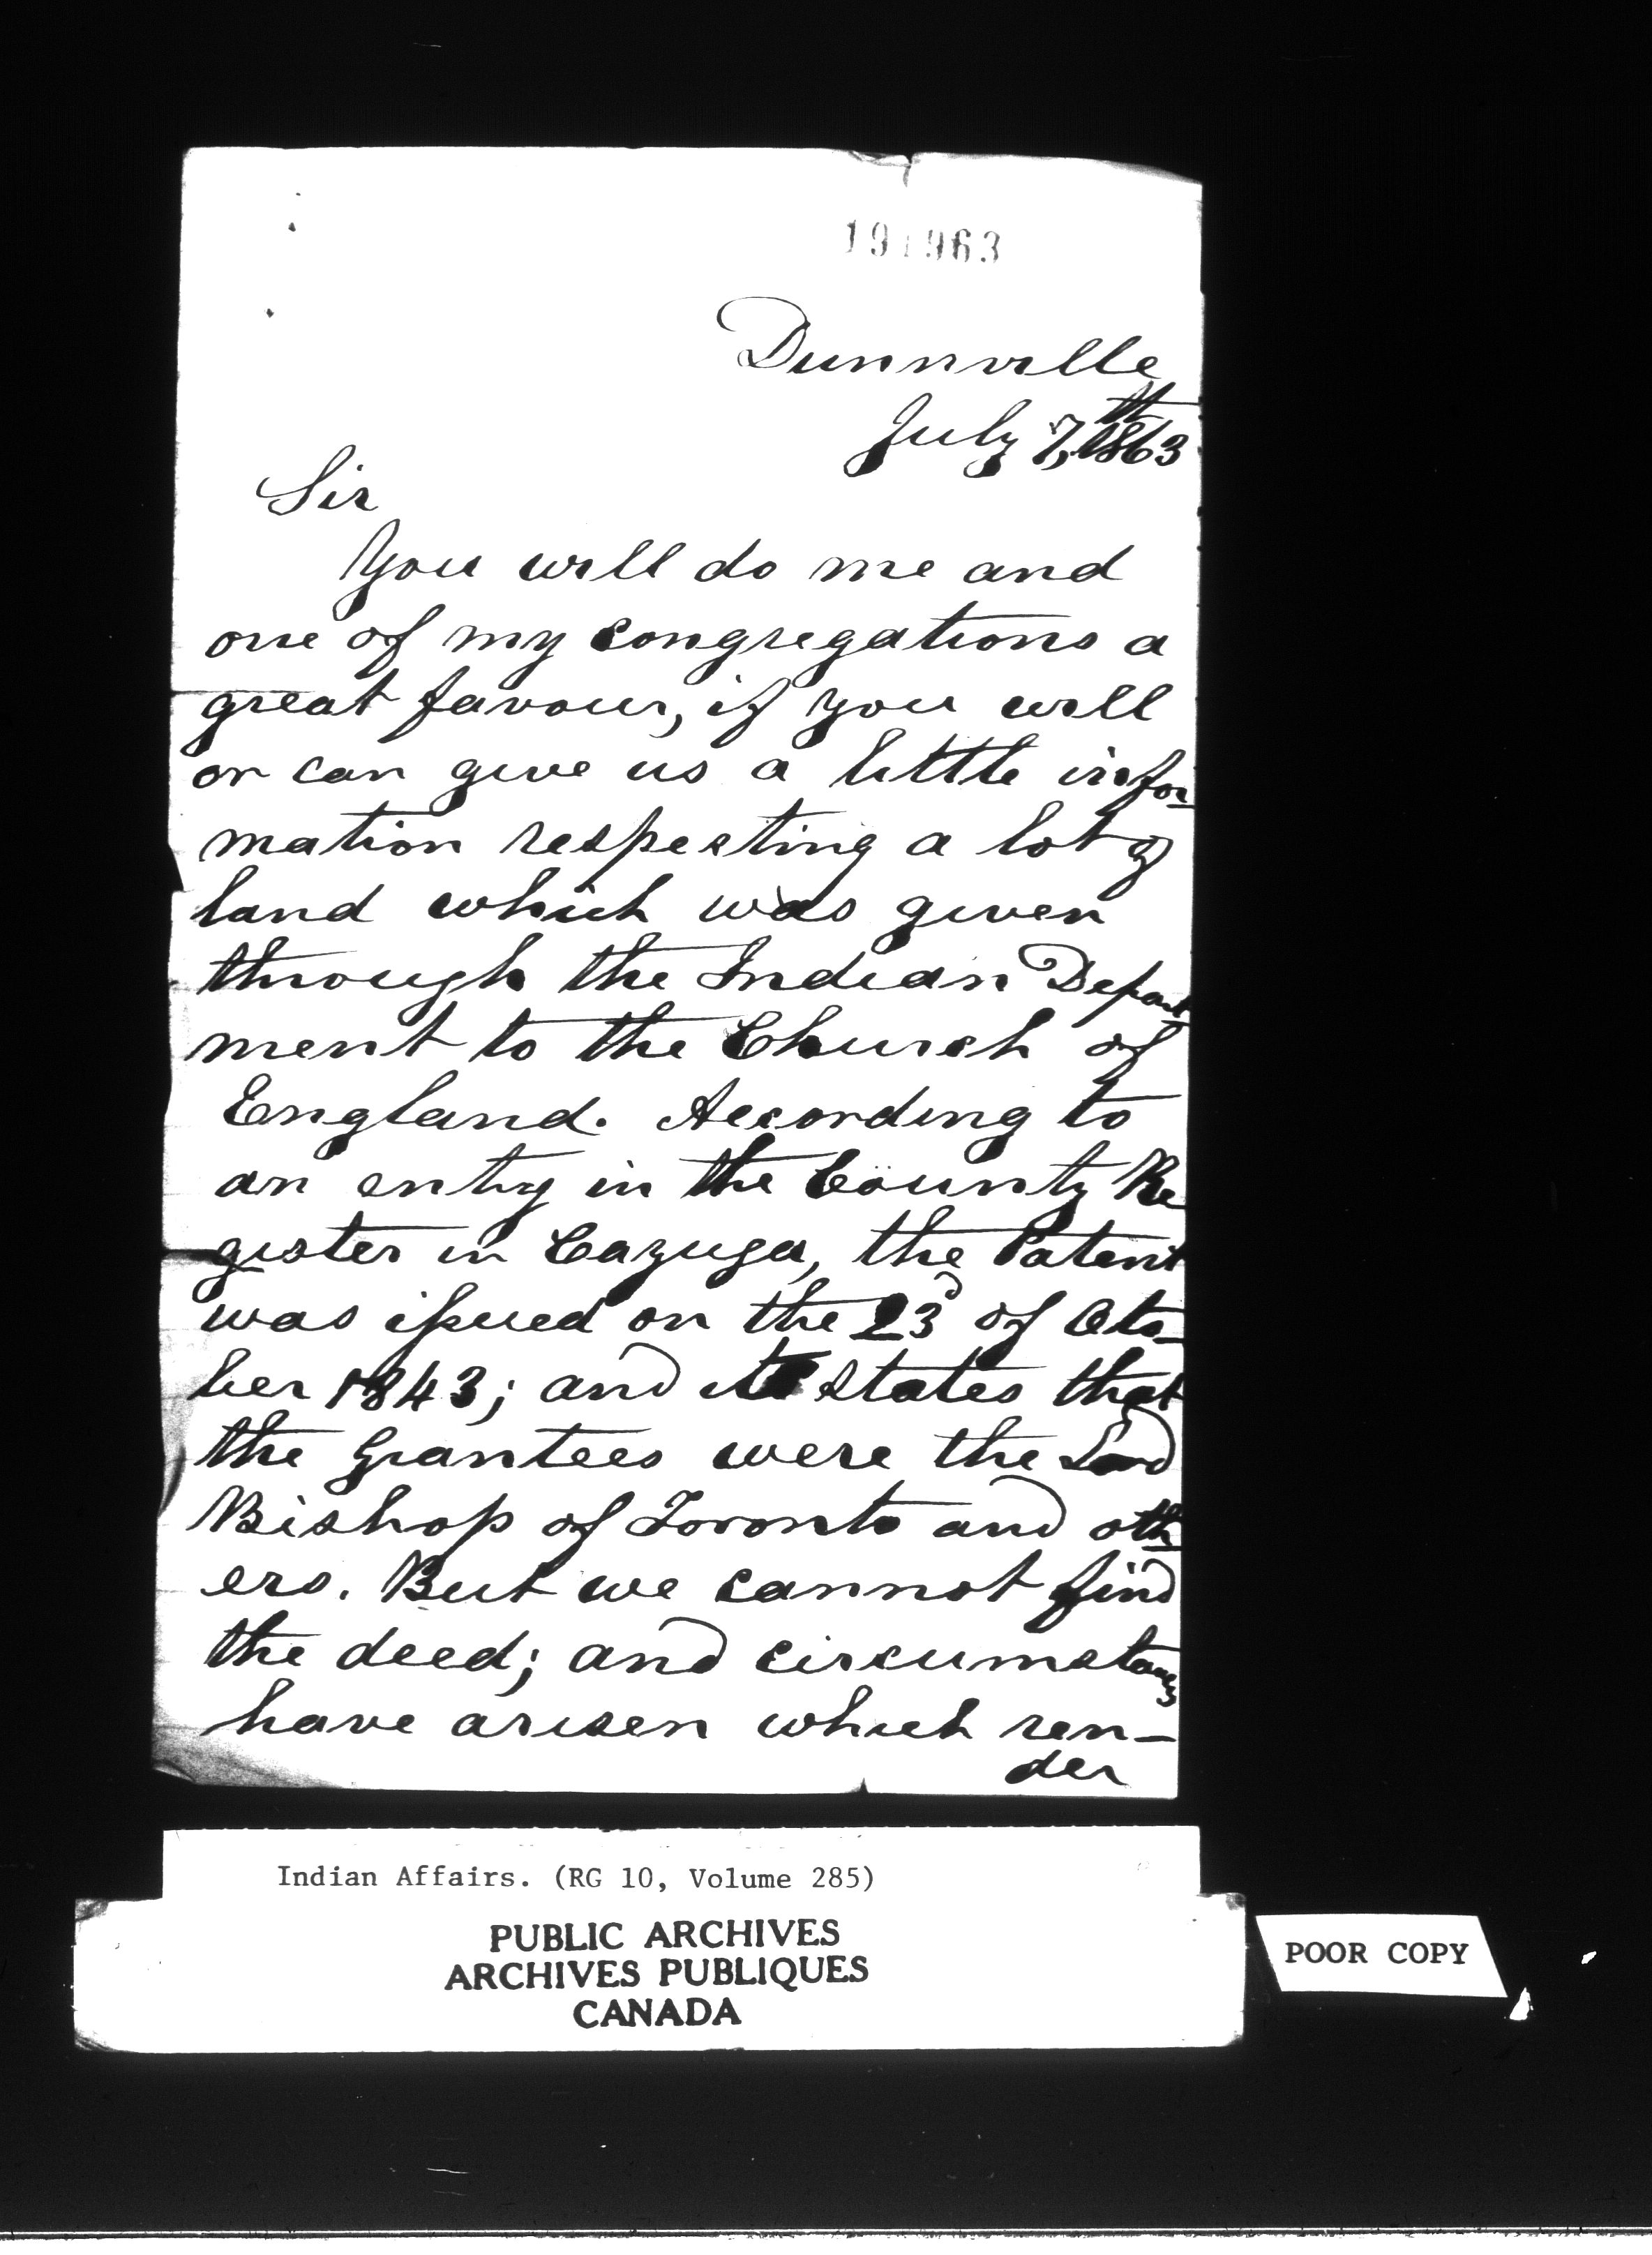 191963
Dunnville
July 7,th 1863
Sir
You will do me and
one of my congregations a
great favour, if you will
or can give us a little infor
mation respecting a lot of
land which was given
through the Indian Depart
ment to the Church of
England. According to
an entry in the County Re
gister in Cayuga, the Patent
was issued on the 23d of Octo-
ber 1843; and it states that
the Grantees were the Lord
Bishop of Toronto and oth
ers. But we cannot find
the deed; and circumstances
have arisen which ren-
der
Indian Affairs. (RG 10, Volume 285)
PUBLIC ARCHIVES
ARCHIVES PUBLIQUES
CANADA
POOR COPY